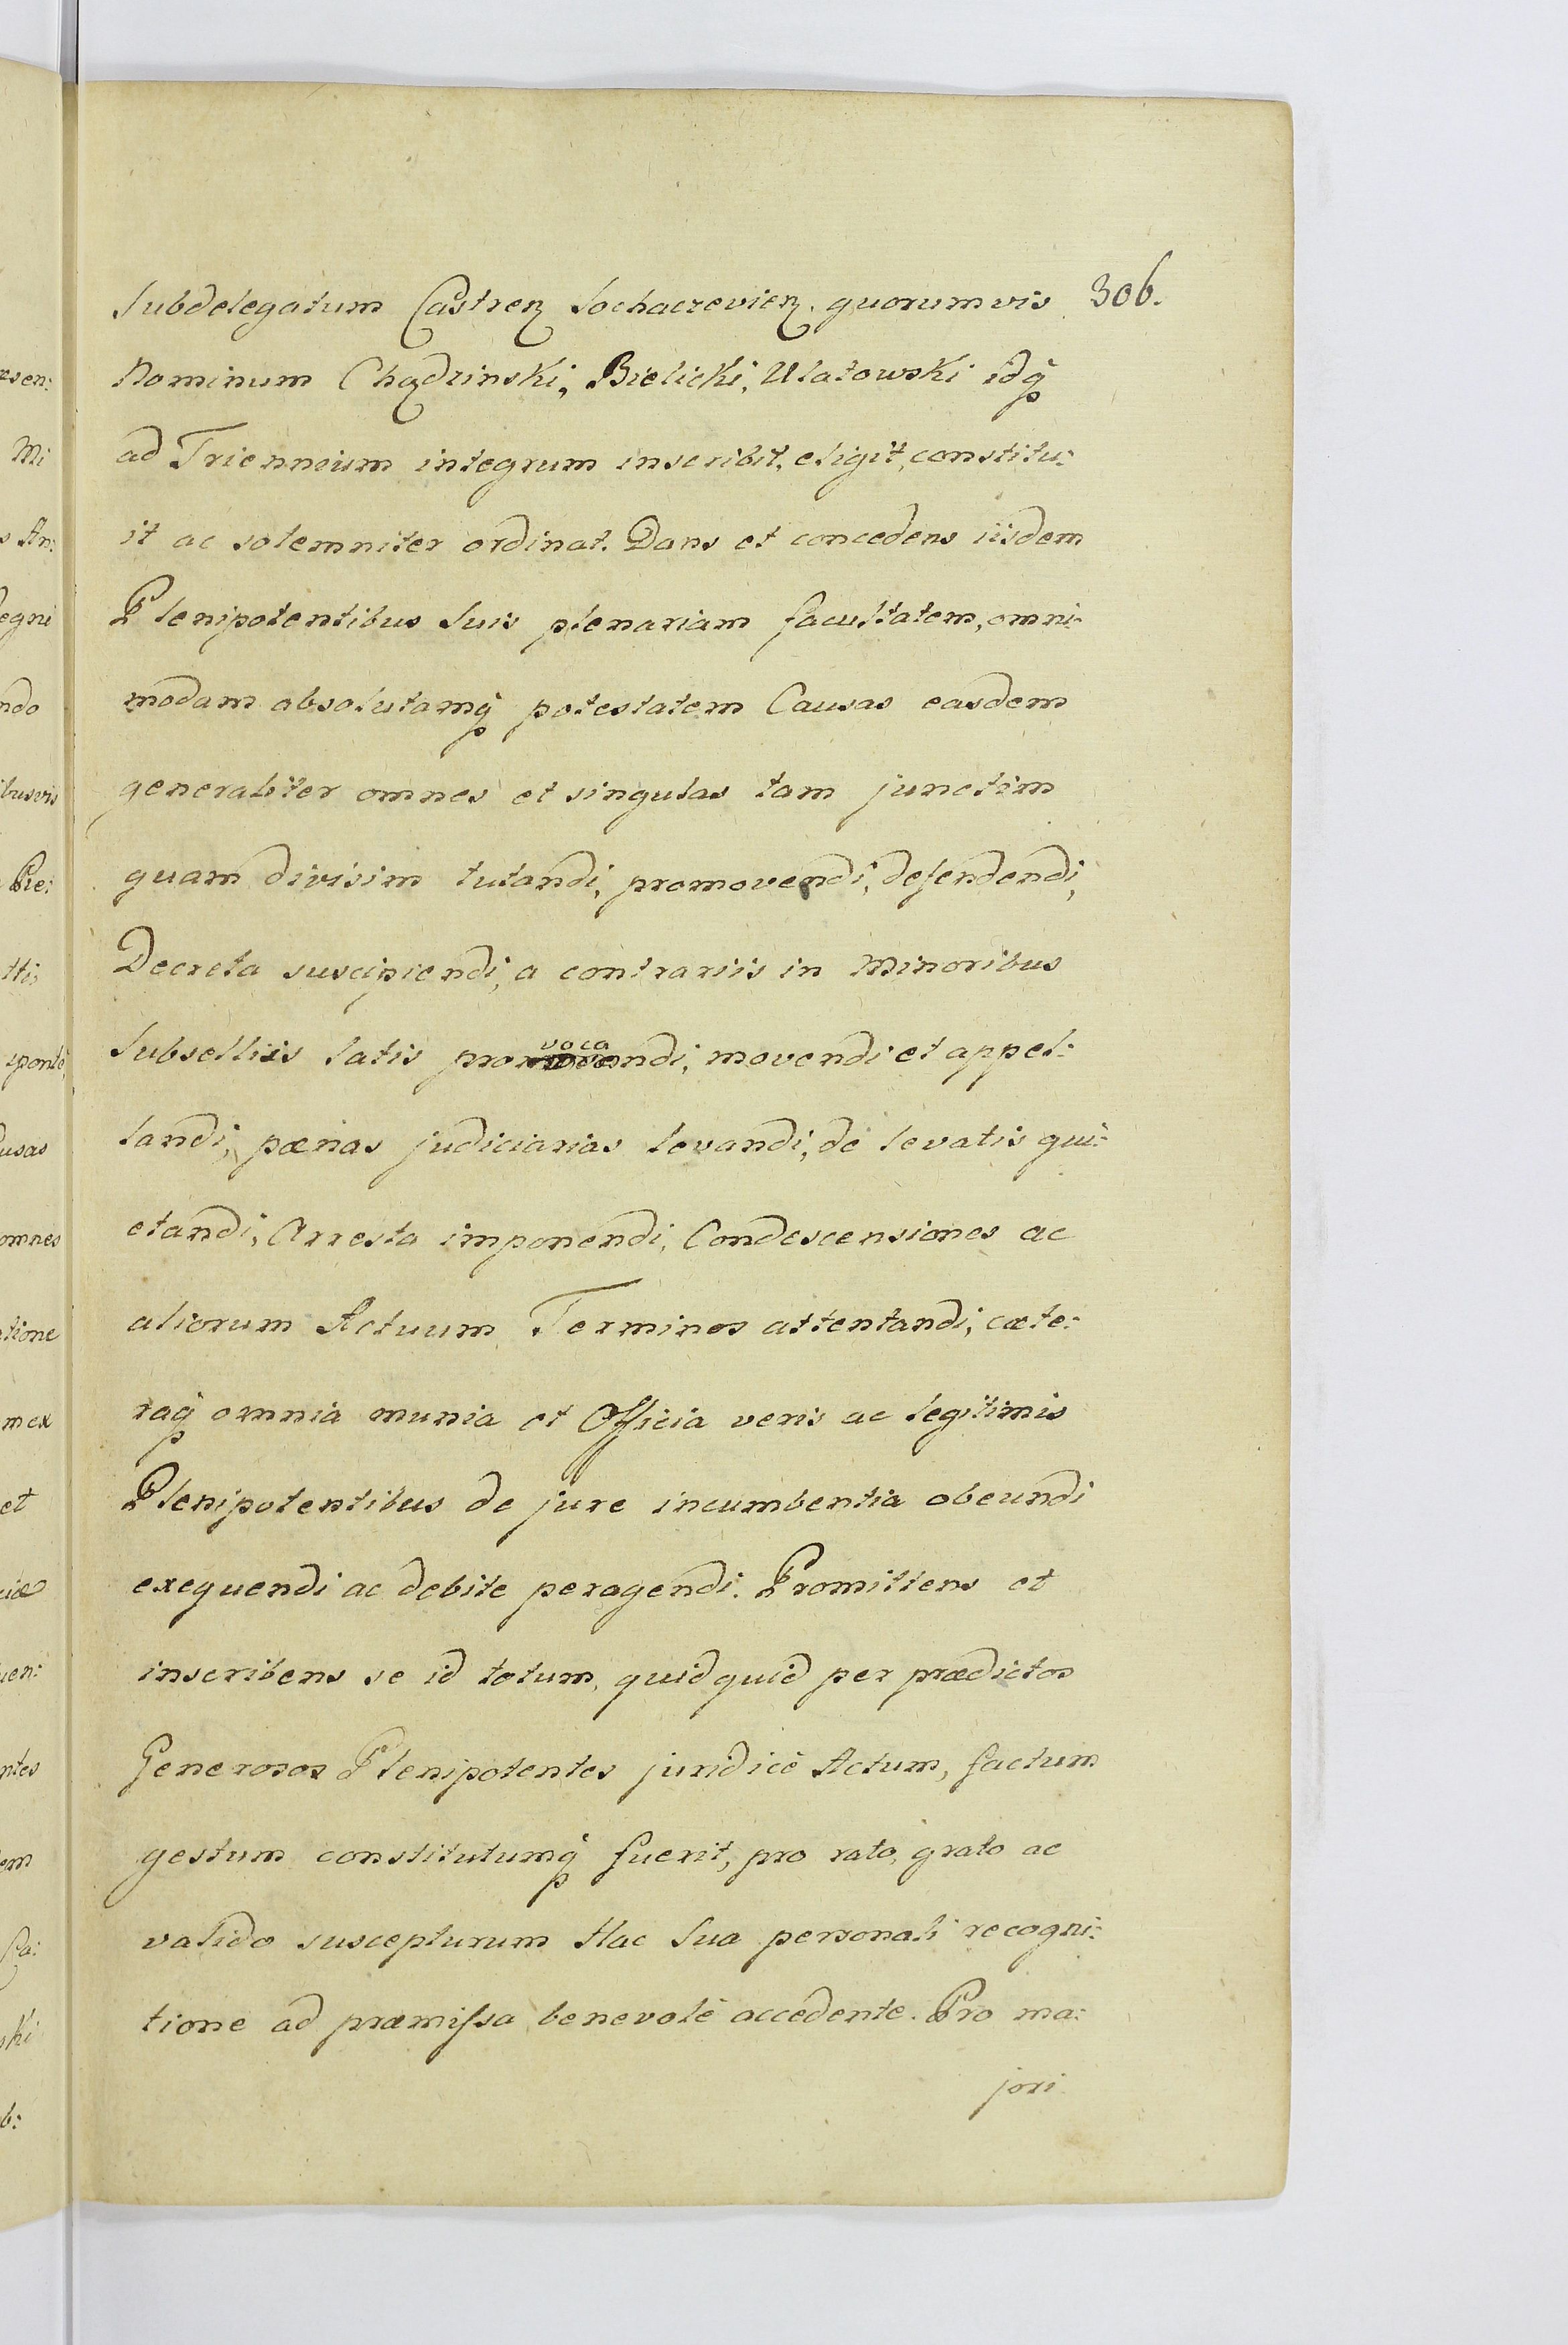 306.
Subdelegatum Castren Sochaczevien. quorumvis
Nominum Chądzinski, Bielicki, Ulatowski idq̃
ad Triennium integrum inscribit, eligit, constitu:
it ac solemniter ordinat. Dans et concedens iisdem
Plenipotentibus Suis plenariam facultatem, omni:
modam absolutamq̃ potestatem Causas easdem
generaliter omnes et singulas tam junctim
quam divisim tutandi, promovendi, defendendi,
Decreta suscipiendi, a contrariis in Minoribus
Subselliis latis provocandi, movendi et appel:
landi, pœnas judiciarias levandi, de levatis qui:
etandi, Arresta imponendi, Condescensiones ac
aliorum Actuum Terminos attentandi, cæte:
raq̃ omnia munia et Officia veris ac legitimis
Plenipotentibus de jure incumbentia obeundi
exequendi ac debite peragendi. Promittens et
inscribens se id totum, quidquid per prædictos
Generosos Plenipotentes juridicè Actum, factum
gestum constitutumq̃ fuerit, pro rato, grato ac
valido suscepturum Hac Sua personali recogni:
tione ad præmiſsa benevolè accedente. Pro ma:
jori